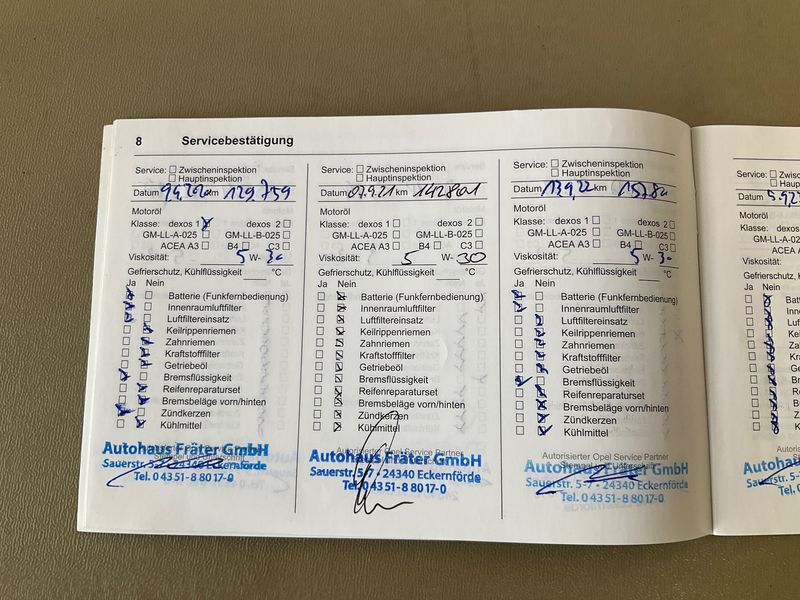 8 Servicebestätigung
Service: Zwischeninspektion
Hauptinspektion
Datum km 129.759
Motoröl
Klasse: dexos 1 dexos 2
GM-LL-A-025 GM-LL-B-025
ACEA A3 B4 C3
Viskosität: 5 W- 30
Gefrierschutz, Kühlflüssigkeit °C
Ja Nein
Batterie (Funkfernbedienung)
Innenraumluftfilter
Luftfiltereinsatz
Keilrippenriemen
Zahnriemen
Kraftstofffilter
Getriebeöl
Bremsflüssigkeit
Reifenreparaturset
Bremsbeläge vorn/hinten
Zündkerzen
Kühlmittel
Autohaus Fräter GmbH
Sauerstr. 5-7 - 24340 Eckernförde
Tel. 0 43 51-8 80 17-0
Service: Zwischeninspektion
Hauptinspektion
Datum 07.9.21 km 142801
Motoröl
Klasse: dexos 1 dexos 2
GM-LL-A-025 GM-LL-B-025
ACEA A3 B4 C3
Viskosität: 5 W- 30
Gefrierschutz, Kühlflüssigkeit °C
Ja Nein
Batterie (Funkfernbedienung)
Innenraumluftfilter
Luftfiltereinsatz
Keilrippenriemen
Zahnriemen
Kraftstofffilter
Getriebeöl
Bremsflüssigkeit
Reifenreparaturset
Bremsbeläge vorn/hinten
Zündkerzen
Kühlmittel
Autorisierter Opel Service Partner
Autohaus Fräter GmbH
Sauerstr. 5-7 - 24340 Eckernförde
Tel. 0 43 51-8 80 17-0
Service: Zwischeninspektion
Hauptinspektion
Datum 13.9.22 km
Motoröl
Klasse: dexos 1 dexos 2
GM-LL-A-025 GM-LL-B-025
ACEA A3 B4 C3
Viskosität: 5 W- 30
Gefrierschutz, Kühlflüssigkeit °C
Ja Nein
Batterie (Funkfernbedienung)
Innenraumluftfilter
Luftfiltereinsatz
Keilrippenriemen
Zahnriemen
Kraftstofffilter
Getriebeöl
Bremsflüssigkeit
Reifenreparaturset
Bremsbeläge vorn/hinten
Zündkerzen
Kühlmittel
Autorisierter Opel Service Partner
Autohaus Fräter GmbH
Sauerstr. 5-7 - 24340 Eckernförde
Tel. 0 43 51-8 80 17-0
Service:
Datum
Motoröl
Klasse:
GM-LL-A-02
ACEA
Viskosität:
Gefrierschutz,
Ja Nein